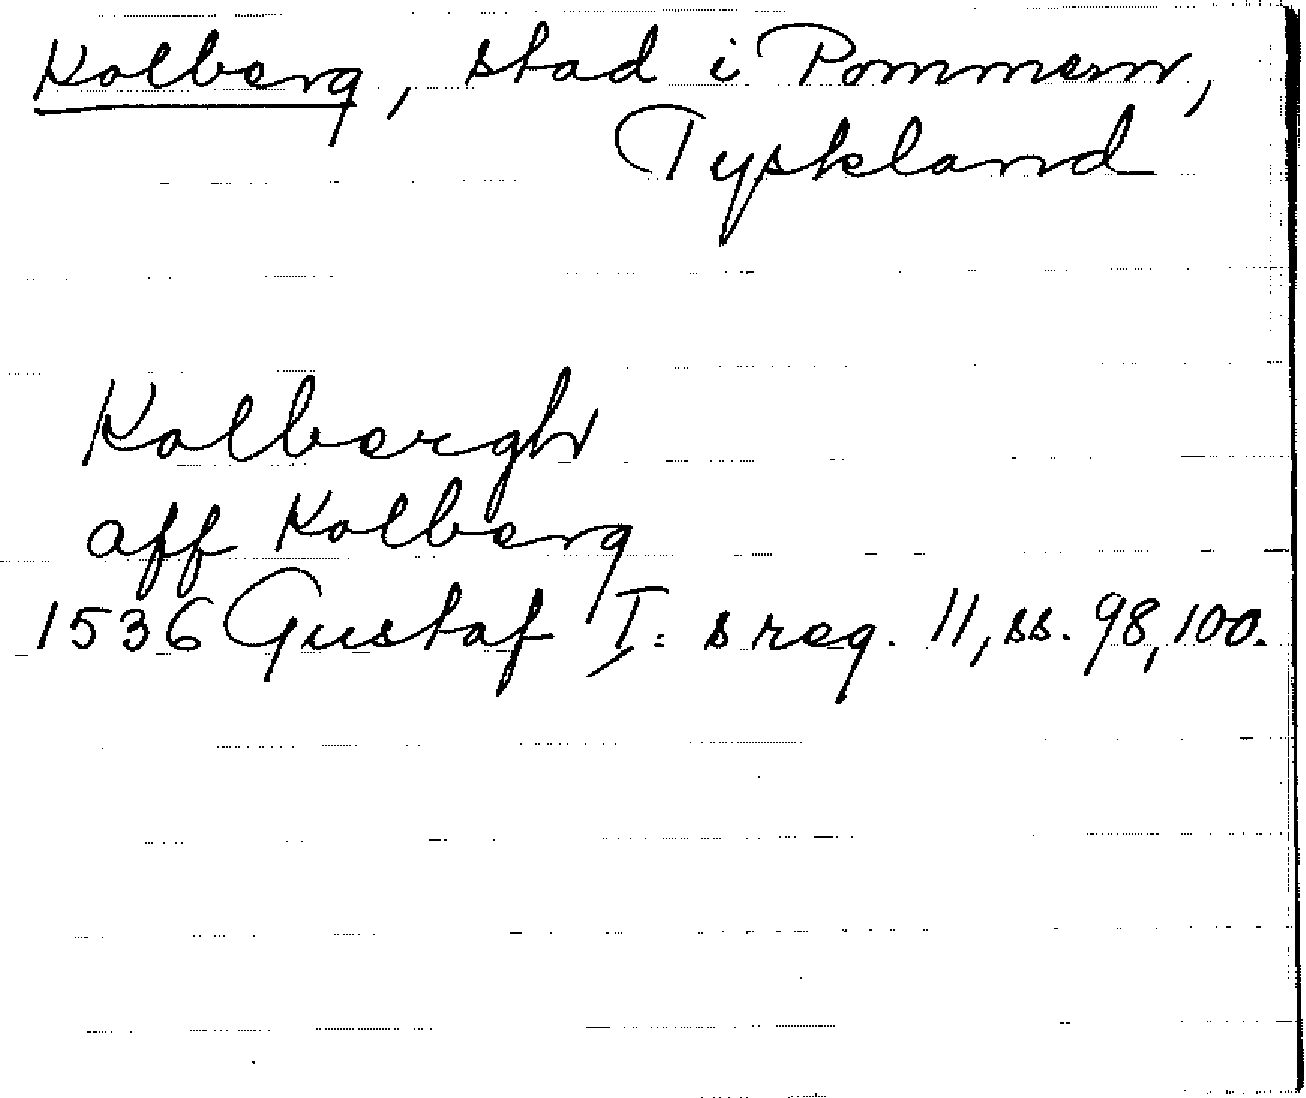 Kolberg, stad i Pommern,
Tyskland
Kolbergh
aff Kolberg
1536 Gustaf I:s reg. 11, ss. 98, 100.